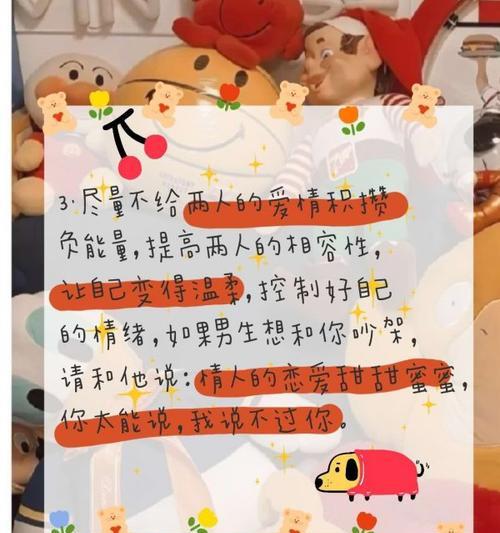 3.尽量不给两人的爱情积攒
负能量,提高两人的相容性,
让自己变得温柔,控制好自己
的情绪,如果男生想和你吵架,
请和他说:情人的恋爱甜甜蜜蜜,
你太能说,我说不过你。